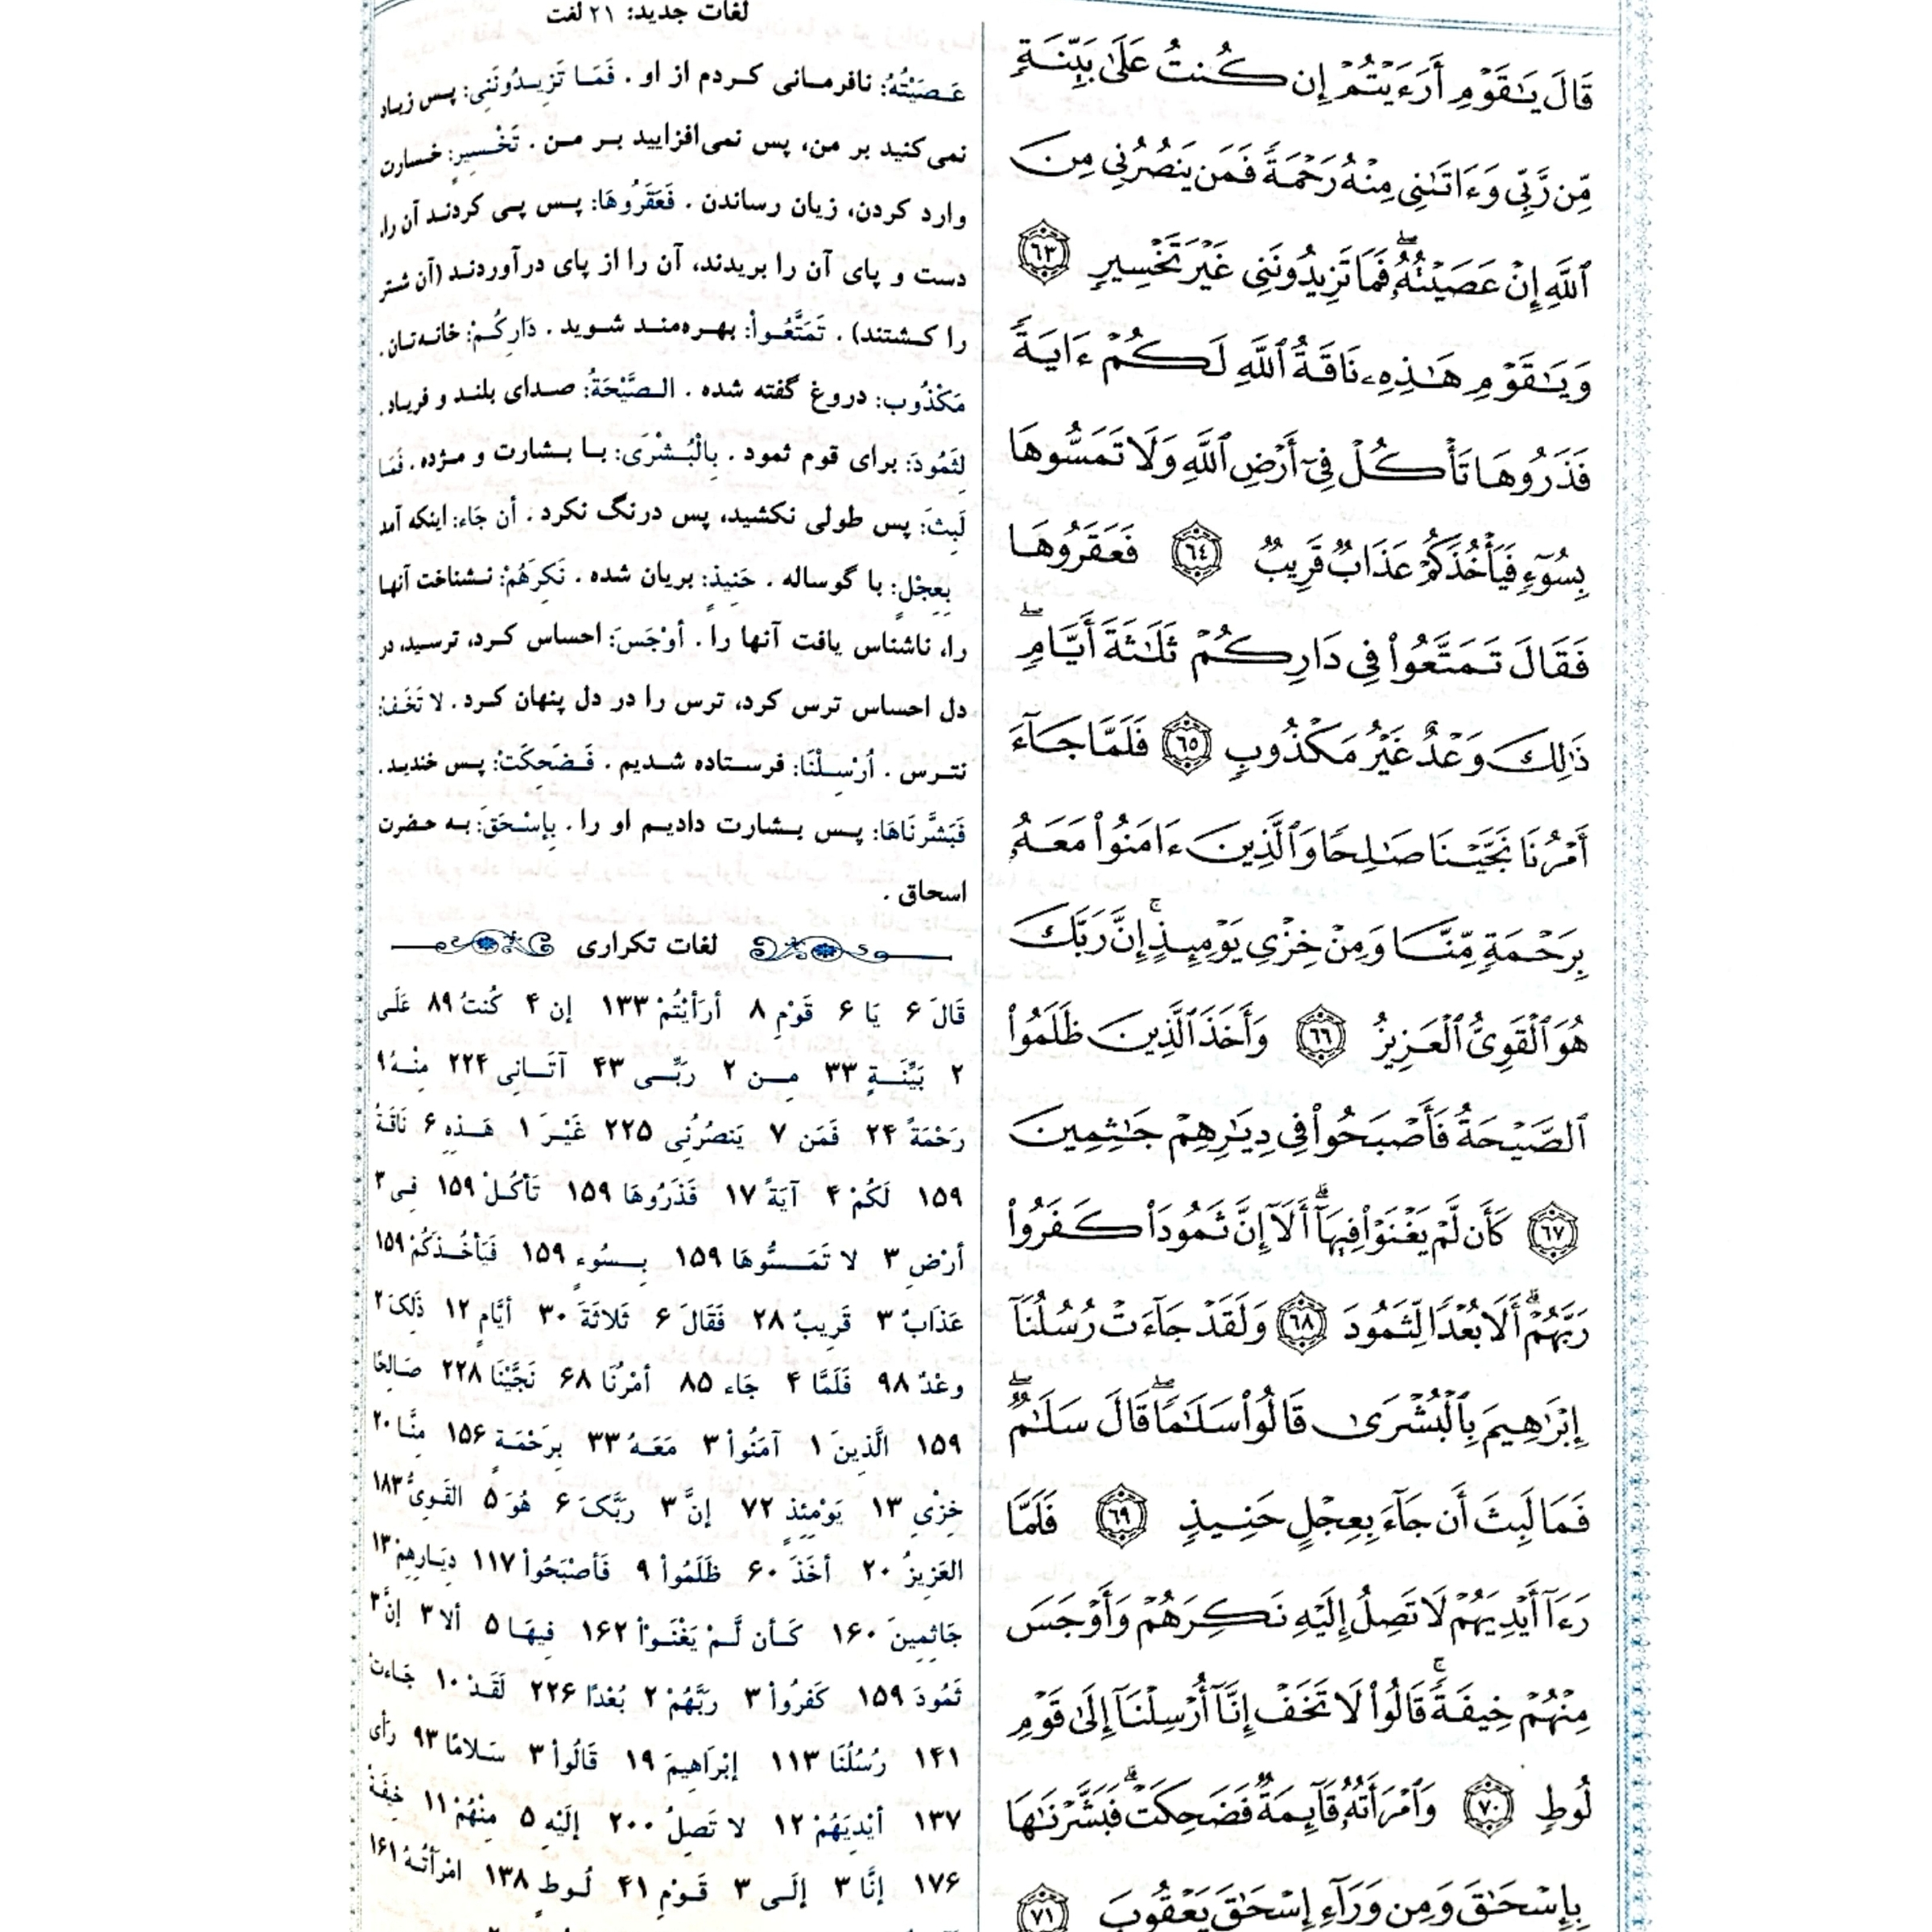 قَالَ يَـٰقَوْمِ أَرَءَيْتُمْ إِن كُنتُ عَلَىٰ بَيِّنَةٍ
مِّن رَّبِّى وَءَاتَىٰنِى مِنْهُ رَحْمَةً فَمَن يَنصُرُنِى مِنَ
ٱللَّهِ إِنْ عَصَيْتُهُۥ ۖ فَمَا تَزِيدُونَنِى غَيْرَ تَخْسِيرٍ ٦٣
وَيَـٰقَوْمِ هَـٰذِهِۦ نَاقَةُ ٱللَّهِ لَكُمْ ءَايَةً
فَذَرُوهَا تَأْكُلْ فِىٓ أَرْضِ ٱللَّهِ وَلَا تَمَسُّوهَا
بِسُوٓءٍ فَيَأْخُذَكُمْ عَذَابٌ قَرِيبٌ ٦٤ فَعَقَرُوهَا
فَقَالَ تَمَتَّعُوا۟ فِى دَارِكُمْ ثَلَـٰثَةَ أَيَّامٍ ۖ
ذَٰلِكَ وَعْدٌ غَيْرُ مَكْذُوبٍ ٦٥ فَلَمَّا جَآءَ
أَمْرُنَا نَجَّيْنَا صَـٰلِحًا وَٱلَّذِينَ ءَامَنُوا۟ مَعَهُۥ
بِرَحْمَةٍ مِّنَّا وَمِنْ خِزْىِ يَوْمِئِذٍ ۚ إِنَّ رَبَّكَ
هُوَ ٱلْقَوِىُّ ٱلْعَزِيزُ ٦٦ وَأَخَذَ ٱلَّذِينَ ظَلَمُوا۟
ٱلصَّيْحَةُ فَأَصْبَحُوا۟ فِى دِيَـٰرِهِمْ جَـٰثِمِينَ
٦٧ كَأَن لَّمْ يَغْنَوْا۟ فِيهَآ ۗ أَلَآ إِنَّ ثَمُودَا۟ كَفَرُوا۟
رَبَّهُمْ ۗ أَلَا بُعْدًا لِّثَمُودَ ٦٨ وَلَقَدْ جَآءَتْ رُسُلُنَآ
إِبْرَٰهِيمَ بِٱلْبُشْرَىٰ قَالُوا۟ سَلَـٰمًا ۖ قَالَ سَلَـٰمٌ ۖ
فَمَا لَبِثَ أَن جَآءَ بِعِجْلٍ حَنِيذٍ ٦٩ فَلَمَّا
رَءَآ أَيْدِيَهُمْ لَا تَصِلُ إِلَيْهِ نَكِرَهُمْ وَأَوْجَسَ
مِنْهُمْ خِيفَةً ۚ قَالُوا۟ لَا تَخَفْ إِنَّآ أُرْسِلْنَآ إِلَىٰ قَوْمِ
لُوطٍ ٧٠ وَٱمْرَأَتُهُۥ قَآئِمَةٌ فَضَحِكَتْ ۗ فَبَشَّرْنَـٰهَا
بِإِسْحَـٰقَ وَمِن وَرَآءِ إِسْحَـٰقَ يَعْقُوبَ ٧١
لغات جدید: ۲۱ لغت
عَصَيْتُهُ: نافرمانی کردم از او . فَمَا تَزِيدُونَنِی: پس زیاد
نمی‌کنید بر من، پس نمی‌افزایید بر من . تَخْسِيرٍ: خسارت
وارد کردن، زیان رساندن . فَعَقَرُوهَا: پس پی کردند آن را،
دست و پای آن را بریدند، آن را از پای درآوردند (آن شتر
را کشتند) . تَمَتَّعُواْ: بهره‌مند شوید . دَارِكُمْ: خانه‌تان .
مَكْذُوب: دروغ گفته شده . الصَّيْحَةُ: صدای بلند و فریاد .
لِثَمُودَ: برای قوم ثمود . بِالْبُشْرَی: با بشارت و مژده . فَمَا
لَبِثَ: پس طولی نکشید، پس درنگ نکرد . أن جَاء: اینکه آمد
بِعِجْلٍ: با گوساله . حَنِيذٍ: بریان شده . نَكِرَهُمْ: نشناخت آنها
را، ناشناس یافت آنها را . أوْجَسَ: احساس کرد، ترسید، در
دل احساس ترس کرد، ترس را در دل پنهان کرد . لا تَخَفْ:
نترس . أُرْسِلْنَا: فرستاده شدیم . فَضَحِكَتْ: پس خندید .
فَبَشَّرنَاهَا: پس بشارت دادیم او را . بِإسْحَقَ: به حضرت
اسحاق .
لغات تکراری
قَالَ ۶ يَا ۶ قَوْمِ ۸ أرَأيْتُمْ ۱۳۳ إن ۴ كُنتُ ۸۹ عَلَی
۲ بَيِّنَةٍ ۳۳ مِن ۲ رَبِّی ۴۳ آتَانِی ۲۲۴ مِنْهُ ۹
رَحْمَةً ۲۴ فَمَن ۷ يَنصُرُنِی ۲۲۵ غَيْرَ ۱ هَذِهِ ۶ نَاقَةُ
۱۵۹ لَكُمْ ۴ آيَةً ۱۷ فَذَرُوهَا ۱۵۹ تَأكُلْ ۱۵۹ فِی ۳
أرْضِ ۳ لا تَمَسُّوهَا ۱۵۹ بِسُوءٍ ۱۵۹ فَيَأخُذَكُمْ ۱۵۹
عَذَابٌ ۳ قَرِيبٌ ۲۸ فَقَالَ ۶ ثَلاثَةَ ۳۰ أيَّامٍ ۱۲ ذَلِکَ ۲
وعْدٌ ۹۸ فَلَمَّا ۴ جَاء ۸۵ أمْرُنَا ۶۸ نَجَّيْنَا ۲۲۸ صَالِحًا
۱۵۹ الَّذِينَ ۱ آمَنُواْ ۳ مَعَهُ ۳۳ بِرَحْمَةٍ ۱۵۶ مِنَّا ۲۰
خِزْیِ ۱۳ يَوْمِئِذٍ ۷۲ إنَّ ۳ رَبَّکَ ۶ هُوَ ۵ القَوِیُّ ۱۸۳
العَزِيزُ ۲۰ أخَذَ ۶۰ ظَلَمُواْ ۹ فَأصْبَحُواْ ۱۱۷ دِيَارِهِمْ ۱۳
جَاثِمِينَ ۱۶۰ كَأن لَّمْ يَغْنَوْاْ ۱۶۲ فِيهَا ۵ ألا ۳ إنَّ ۳
ثَمُودَ ۱۵۹ كَفَرُواْ ۳ رَبَّهُمْ ۲ بُعْدًا ۲۲۶ لَقَدْ ۱۰ جَاءت
۱۴۱ رُسُلُنَا ۱۱۳ إبْرَاهِيمَ ۱۹ قَالُواْ ۳ سَلامًا ۹۳ رَأى
۱۳۷ أيْدِيَهُمْ ۱۲ لا تَصِلُ ۲۰۰ إلَيْهِ ۵ مِنْهُمْ ۱۱ خِيفَةً
۱۷۶ إنَّا ۳ إلَی ۳ قَوْمِ ۴۱ لُوطٍ ۱۳۸ امْرَأتُهُ ۱۶۱